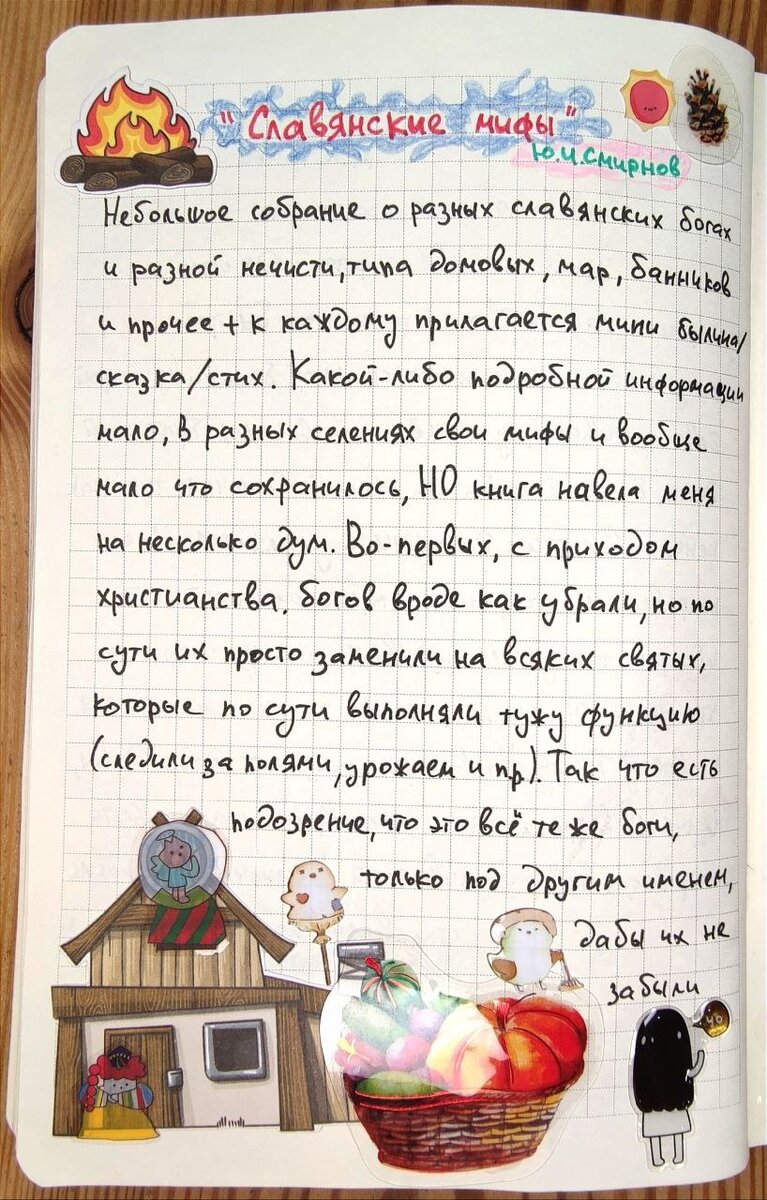 "Славянские мифы"
Ю.И.Смирнов
Небольшое собрание о разных славянских богах
и разной нечисти, типа домовых, мар, банников
и прочее + к каждому прилагается мини былина/
сказка/стих. Какой-либо подробной информации
мало, в разных селениях свои мифы и вообще
мало что сохранилось, НО книга навела меня
на несколько дум. Во-первых, с приходом
христианства. богов вроде как убрали, но по
сути их просто заменили на всяких святых,
которые по сути выполняли тужу функцию
(следили за полями, урожаем и пр). Так что есть
подозрение, что это всё те же боги,
только под другим именем,
дабы их не
забыли